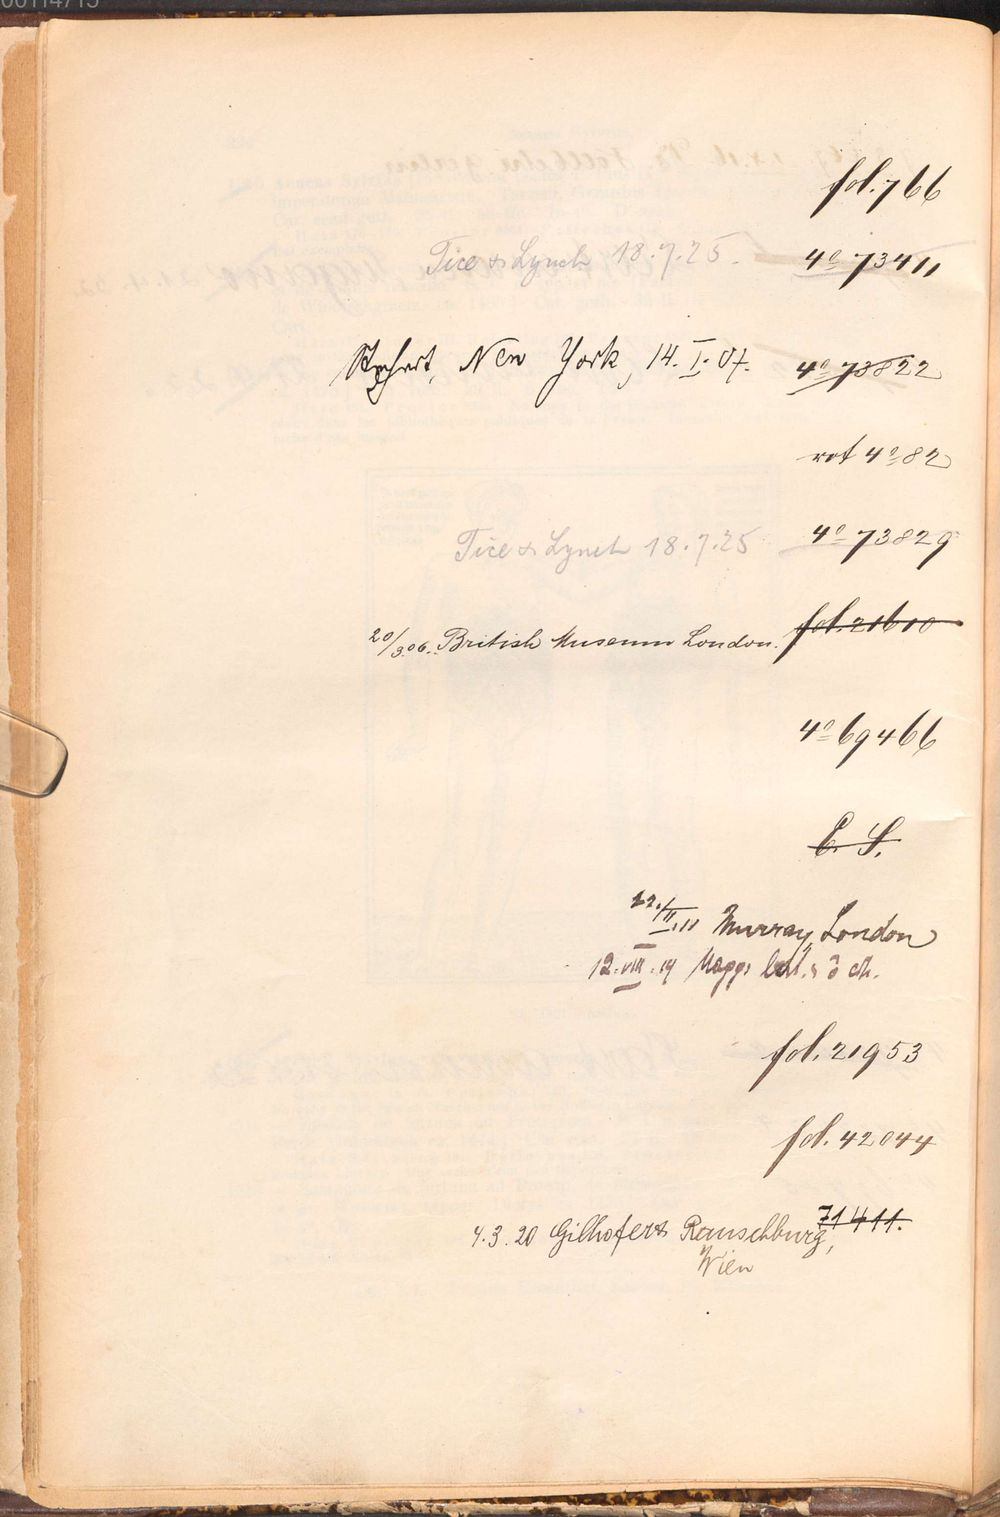 00114715
fol. 766
Tice & Lynch 18.7.25. 4º 73411
Stechert, New York, 14. I. 07. 4º 73822
rot 4º 82
Tice & Lynch 18.7.25 4º 73829
20/3.06. British Museum London. fol. 21610
4º 69466
C. S.
22./II.11 Murray, London
12.VIII.14 Maggs
fol. 21953
fol. 42044
71411.
4.3.20 Gilhofer & Ranschburg,
Wien